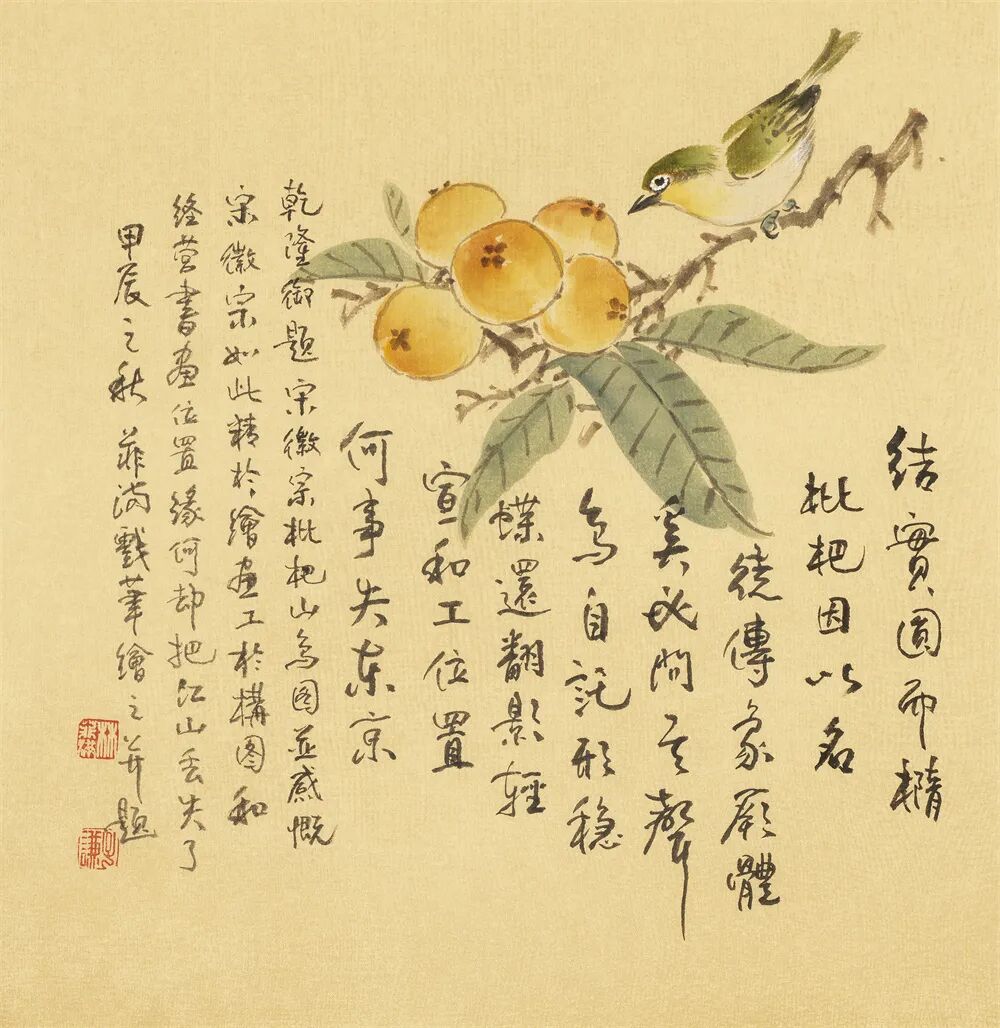 結實圓而橢
枇杷因以名
繞傳象厥體
奚必問其聲
鳥自託形穩
蝶還翻影輕
宣和工位置
何事失東京
乾隆御題宋徽宗枇杷山鳥图並感慨
宋徽宗如此精於繪畫工於構图和
经营書畫位置缘何却把江山丢失了
甲辰之秋菲滿戲筆繪之并題